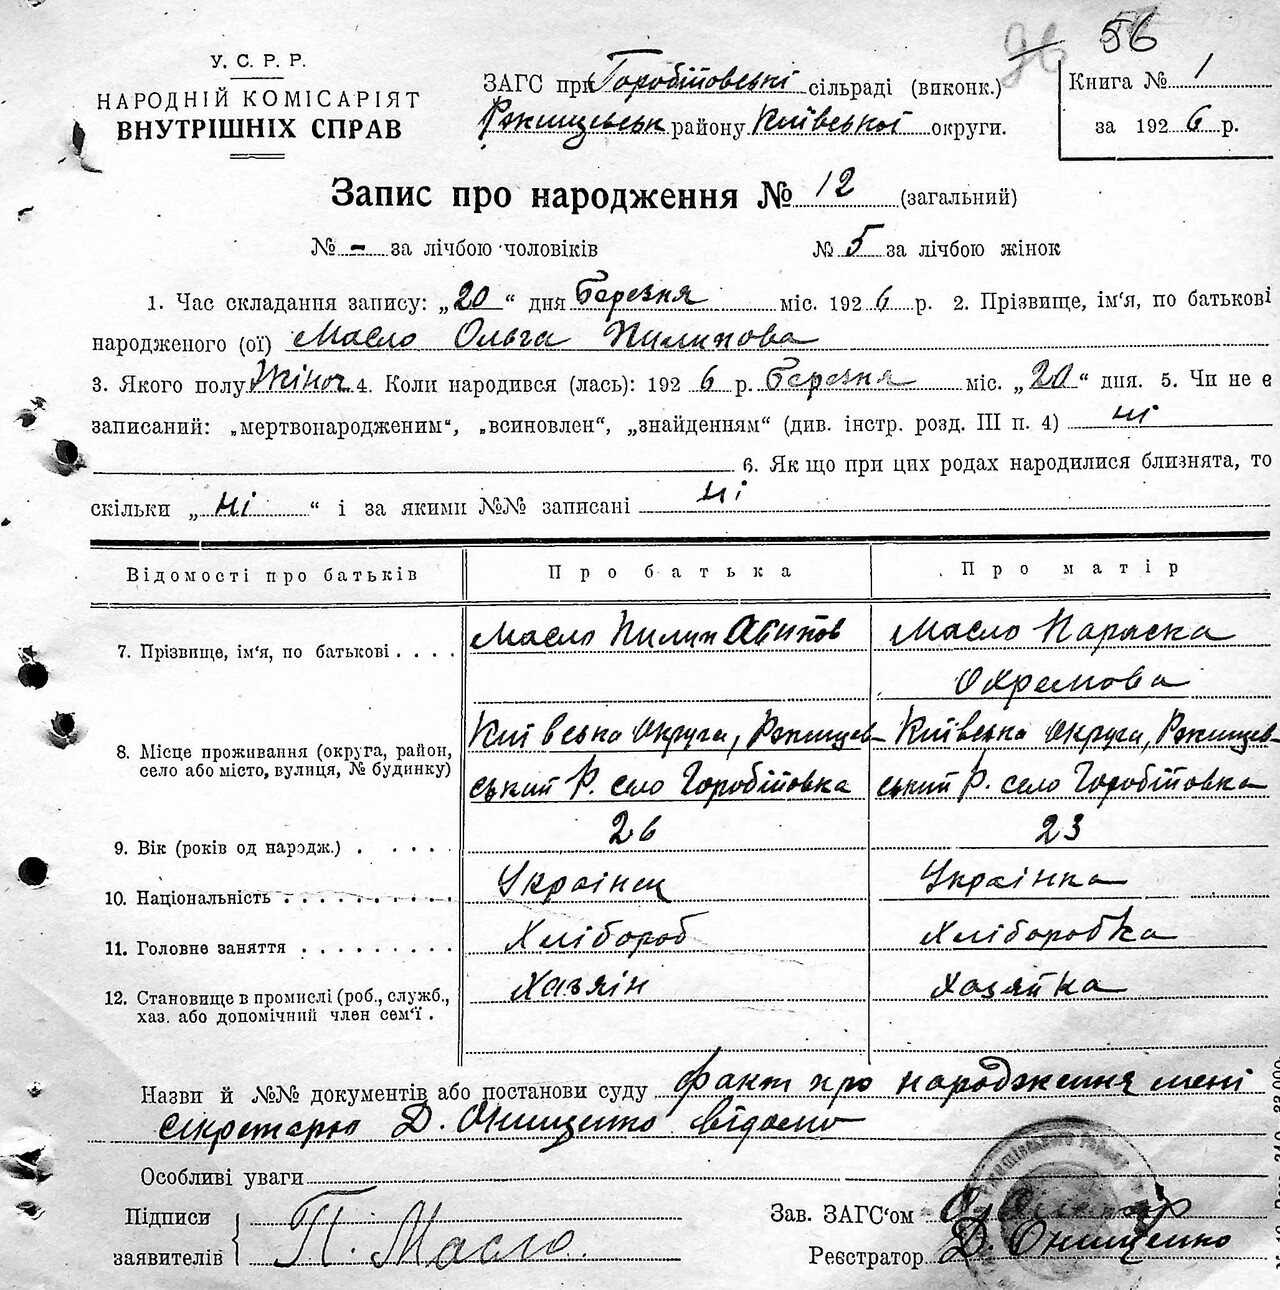 56
У. С. Р. Р.
НАРОДНІЙ КОМІСАРІЯТ
ВНУТРІШНІХ СПРАВ
ЗАГС при Горобіївські сільраді (виконк.)
Ржищевськ району Київської округи.
Книга № 1
за 1926 р.
Запис про народження № 12 (загальний)
№ - за лічбою чоловіків № 5 за лічбою жінок
1. Час складання запису: „20“ дня Березня міс. 1926 р. 2. Прізвище, ім'я, по батькові
народженого (ої) Масло Ольга Пилипова
3. Якого полу Жіноч 4. Коли народився (лась): 1926 р. Березня міс. „20“ дня. 5. Чи не є
записаний: „мертвонародженим“, „всиновлен“, „знайденням“ (див. інстр. розд. III п. 4) ні
6. Як що при цих родах народилися близнята, то
скільки „ні“ і за якими №№ записані ні
Відомості про батьків Про батька Про матір
7. Прізвище, ім'я, по батькові . . . . Масло Пилип Авипов Масло Параска
Охремова
8. Місце проживання (округа, район, Київська Округа, Ржищев- Київська Округа, Ржищев-
село або місто, вулиця, № будинку) ський Р. село Горобіївка ський Р. село Горобіївка
9. Вік (років од народж.) . . . . . 26 23
10. Національність . . . . . . . . . . Українец Українка
11. Головне заняття . . . . . . . . . Хлібороб Хліборобка
12. Становище в промислі (роб., служб., Хазяїн Хазяйка
хаз. або допомічний член сем'ї .
Назви й №№ документів або постанови суду факт про народження мені
секретарю Д. Онищенко відомо
Особливі уваги
Підписи
заявителів П. Масло.
Зав. ЗАГС'ом
Реєстратор Д. Онищенко